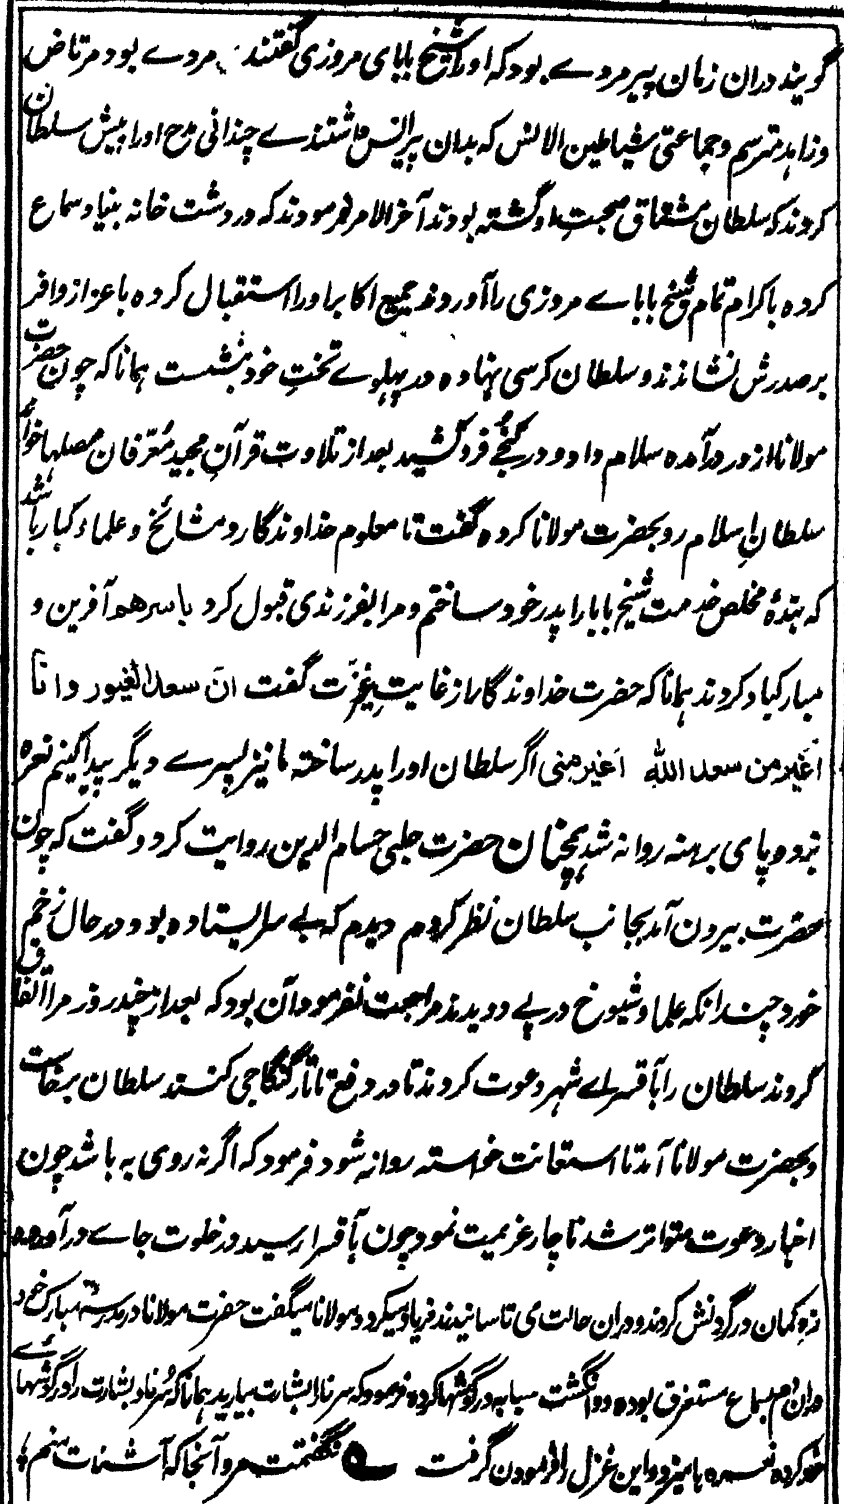 گویند دران زمان پیر مردے بود که اورا شیخ بابای مروزی گفتند مردے بود مرتاض
و زاهد مترسم و جماعتی شیاطین الانس که بدان پیر انس داشتندے چندانی مدح او را پیش سلطان
کردند که سلطان مشتاق صحبت او گشته بودند آخر الامر فرمودند که در دشت خانه بنیاد سماع
کرده باکرام تمام شیخ باباے مروزی را آوردند جمیع اکابر اورا استقبال کرده باعزاز وافر
بر صدرش نشاندند و سلطان کرسی نهاده در پهلوے تخت خود بنشست همانا که چون حضرت
مولانا از در درآمده سلام داد و در کنجے فرو کشید بعد از تلاوت قرآن مجید معرفان فصلها خواندند
سلطان اسلام رو بحضرت مولانا کرده گفت تا معلوم خداوندگار و مشائخ و علماء کبار باشد
که بندهٔ مخلص خدمت شیخ بابا را پدر خود ساختم و مرا بفرزندی قبول کرد باسرهم آفرین و
مبارکباد کردند همانا که حضرت خداوندگار از غایت غیرت گفت ان سعدا لغیور و انا
اغیر من سعد الله اغیر منی اگر سلطان او را پدر ساخته ما نیز پسرے دیگر پیدا کنیم نعره
بزد و پای برهنه روانه شد همچنان حضرت چلبی حسام الدین روایت کرد و گفت که چون
حضرت بیرون آمد بجانب سلطان نظر کردم دیدم که بے سر ایستاده بود در حال زخم
خورد چندانکه علما و شیوخ در پے دویدند مراجعت نفرمود آن بود که بعد از چند روز مرا اتفاق
کردند سلطان را بآقسراے شهر دعوت کردند تا در دفع تاتار کنگاجی کنند سلطان برخاست
و بحضرت مولانا آمد تا استعانت خواسته روانه شود فرمود که اگر نه روی به باشد چون
اخبار دعوت متواتر شد ناچار عزیمت نمود چون بآقسرا رسید در خلوت جاے درآورده
زه کمان در گردنش کردند و دران حالت می تاسانیدند فریاد میکرد و مولانا میگفت حضرت مولانا در مدرسهٔ مبارک خود
دران دم بسماع مستغرق بوده دو انگشت سبابه در گوشها کرده فرمود که سرنا و بشارت بیارید همانا که سرنا و بشارت را در گوشهاے
خود کرده نعره ها میزد و این غزل را فرمودن گرفت ه نگفتمت مرو آنجا که آشنات منم